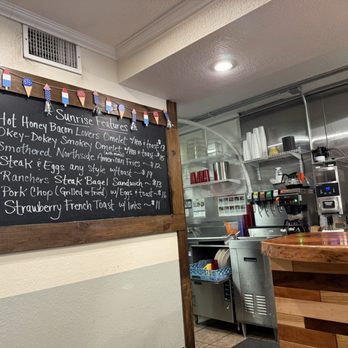 Sunrise Features
Hot Honey Bacon Lovers Omelet w/Am + toast
Okey-Dokey Smokey Omelet w/Am + toast
Smothered Northside American Fries
Steak & Eggs any Style w/toast
Ranchers Steak Bagel Sandwich
Pork Chop (Grilled or Fried) w/ Eggs + toast
Strawberry French Toast w/